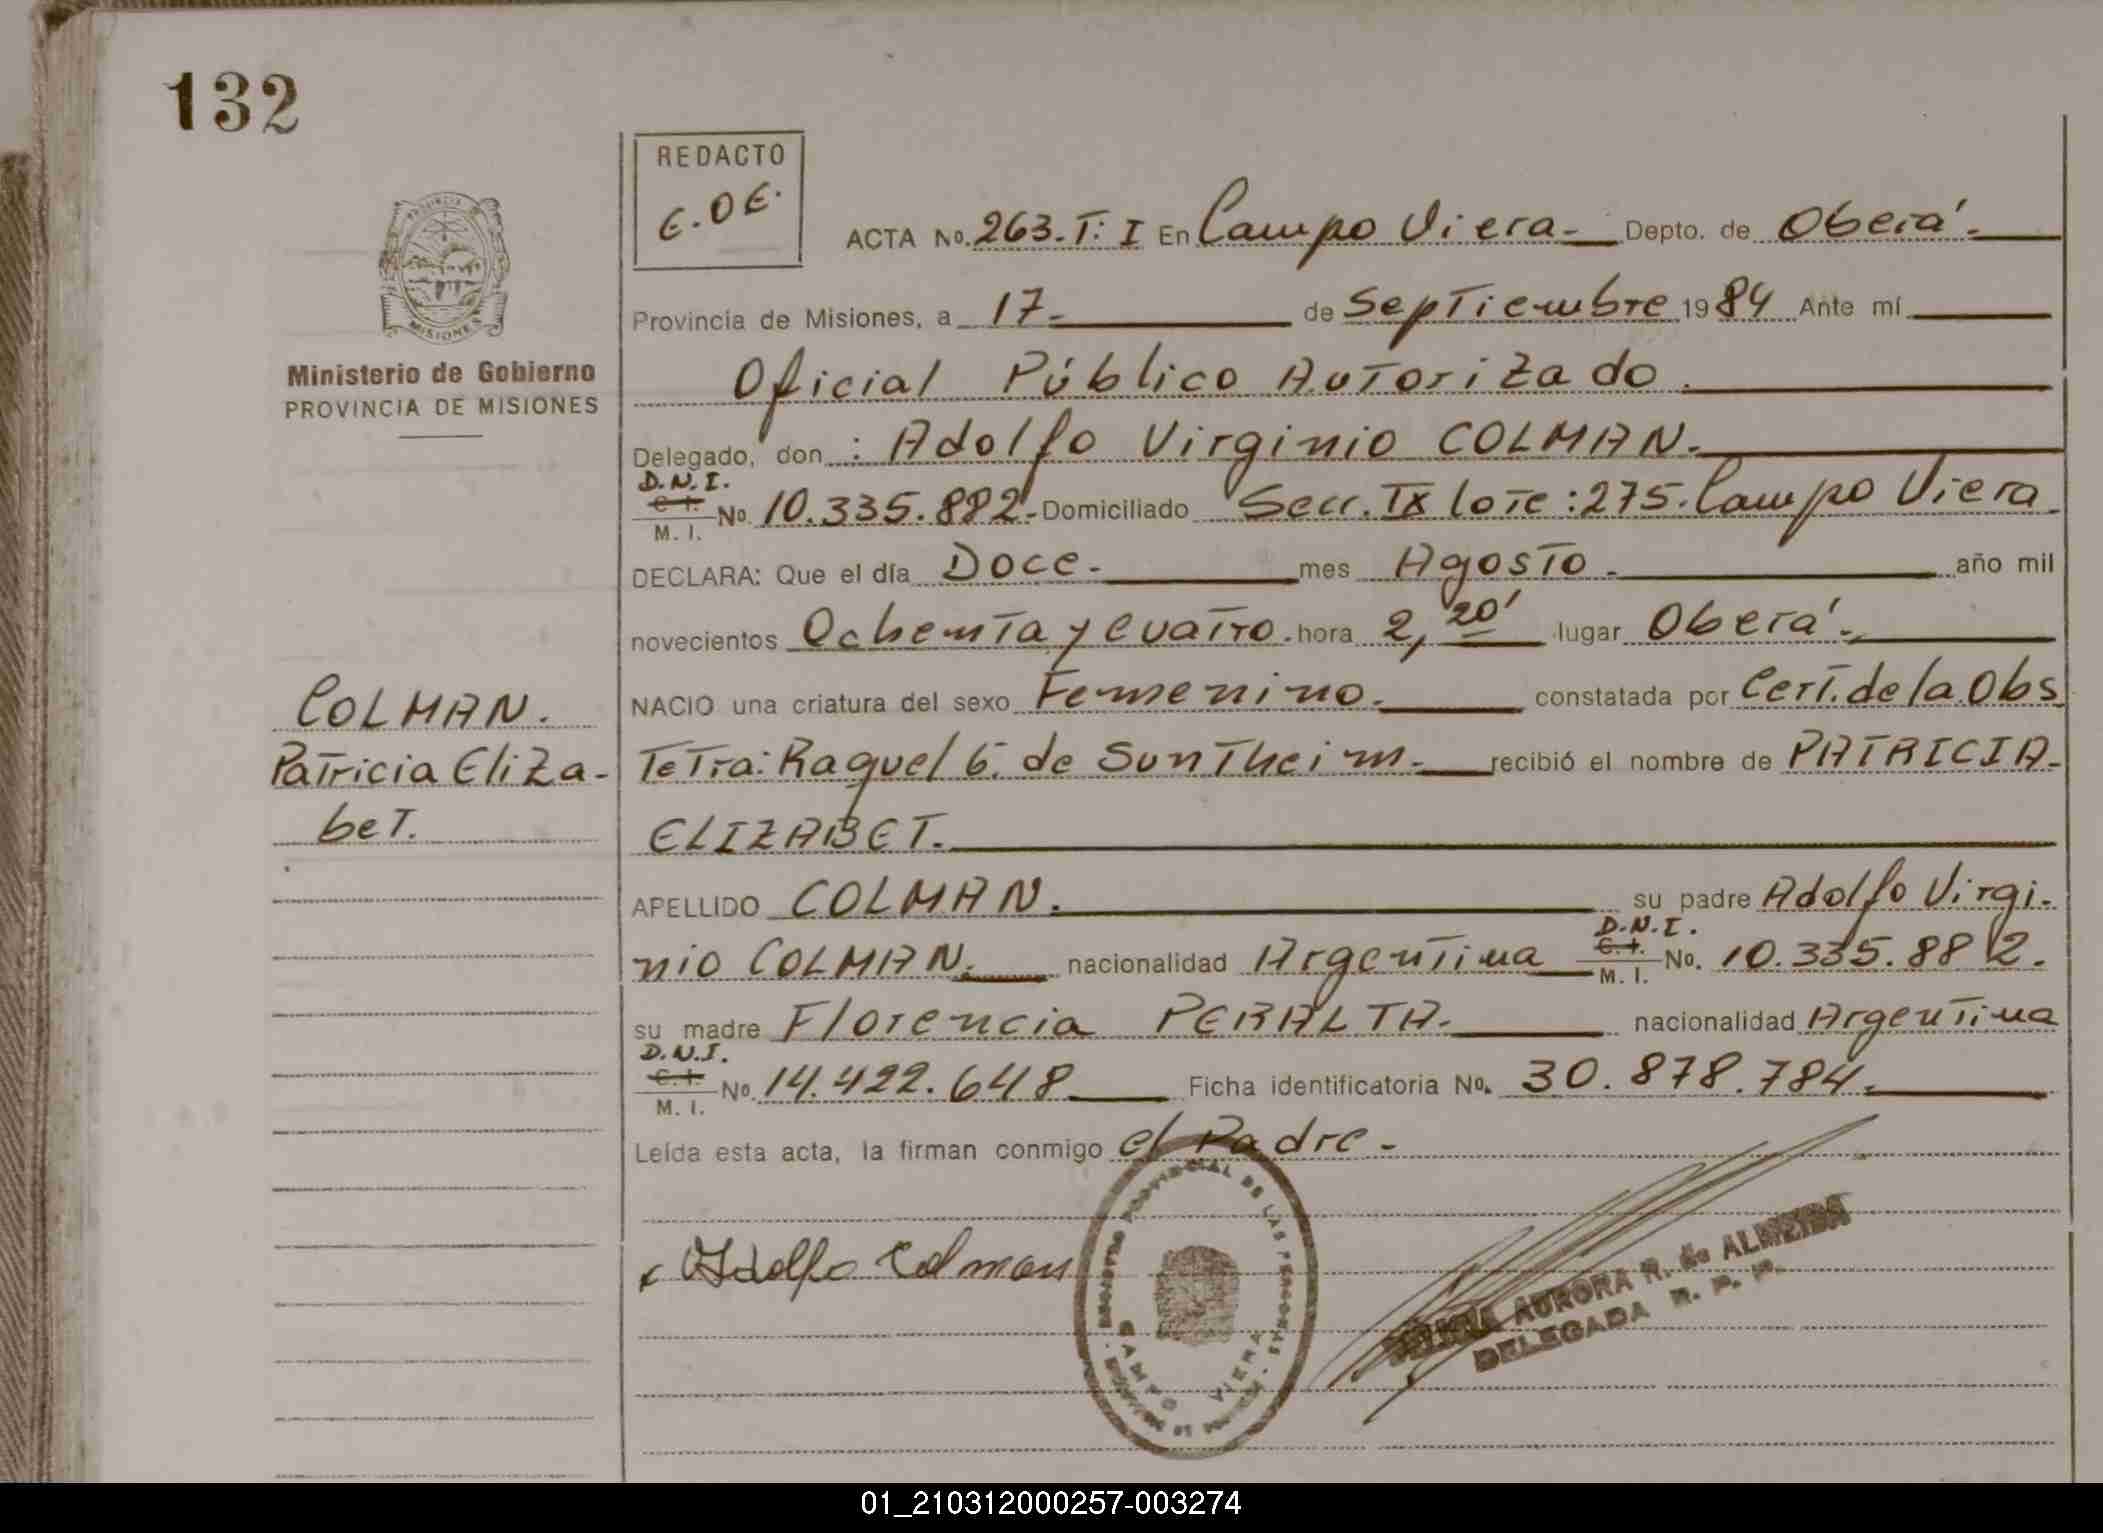 132
REDACTO
E.DE.
ACTA No. 263.T: I En Campo Viera.- Depto. de Oberá.-
Provincia de Misiones, a 17.- de Septiembre 1984 Ante mí
Oficial Público Autorizado.
Delegado, don : Adolfo Virginio COLMAN.
D.N.I.
C.I. No. 10.335.882.- Domiciliado Secc. IX lote:275.Campo Viera
M. I.
DECLARA: Que el día Doce.- mes Agosto.- año mil
novecientos Ochenta y cuatro. hora 2,20' lugar Oberá.-
NACIO una criatura del sexo Femenino. constatada por Cert.de la Obs
Tetra: Raquel G. de Suntheim.- recibió el nombre de PATRICIA-
ELIZABET.
APELLIDO COLMAN. su padre Adolfo Virgi-
nio COLMAN. nacionalidad Argentina
D.N.I.
C.I. No. 10.335.882.
M. I.
su madre Florencia PERALTA.- nacionalidad Argentina
D.N.I.
C.I. No. 14.422.648 Ficha identificatoria No. 30.878.784.
M. I.
Leída esta acta, la firman conmigo el Padre.-
Adolfo Colman
PROVINCIAL DE LAS PERSONAS
CAMPO VIERA
AURORA R. de ALMEIDA
DELEGADA R. P. P.
PROVINCIA
MISIONES
Ministerio de Gobierno
PROVINCIA DE MISIONES
COLMAN.
Patricia Eliza-
bet.
01_210312000257-003274